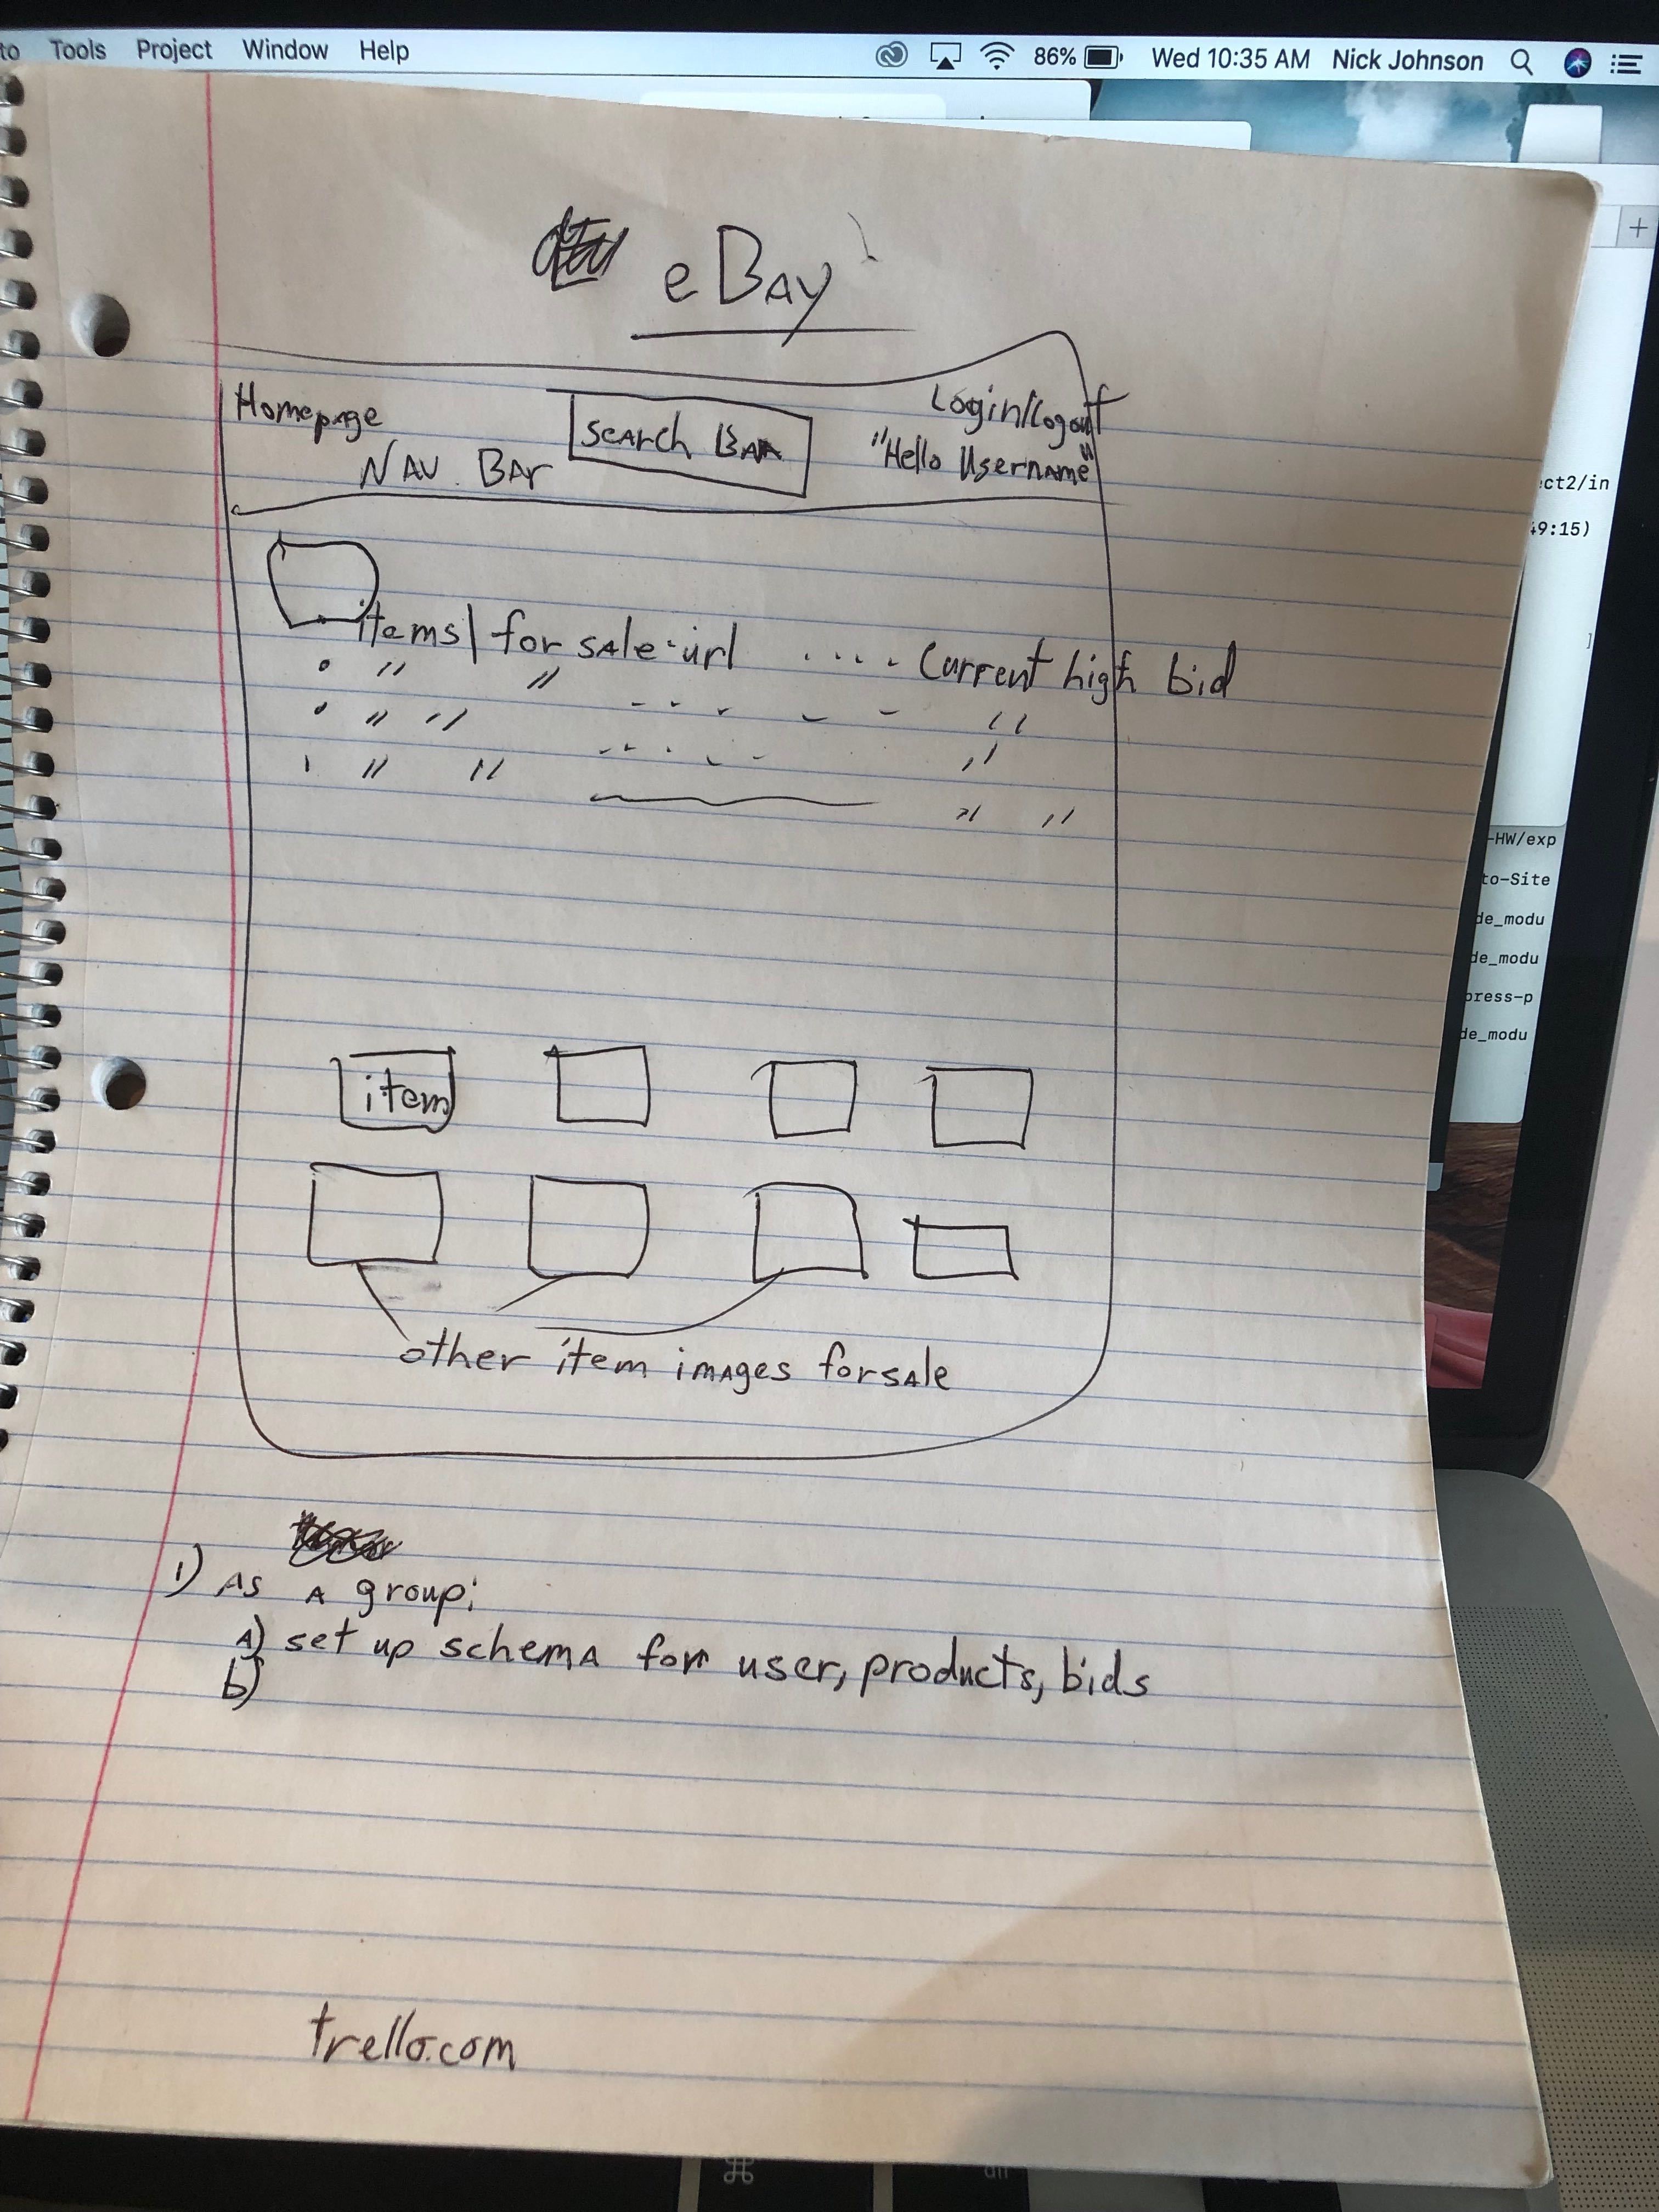 to Tools Project Window Help 86% Wed 10:35 AM Nick Johnson
+
eBay
Homepage
Nav. Bar
Search Bar
Login/Logout
"Hello Username"
items for sale - url .... Current high bid
" "
" " - - - - - "
" " "
" "
item
other item images for sale
1) As a group:
A) set up schema for user, products, bids
b)
trello.com
ct2/in
49:15)
]
-HW/exp
to-Site
de_modu
de_modu
press-p
de_modu
⌘